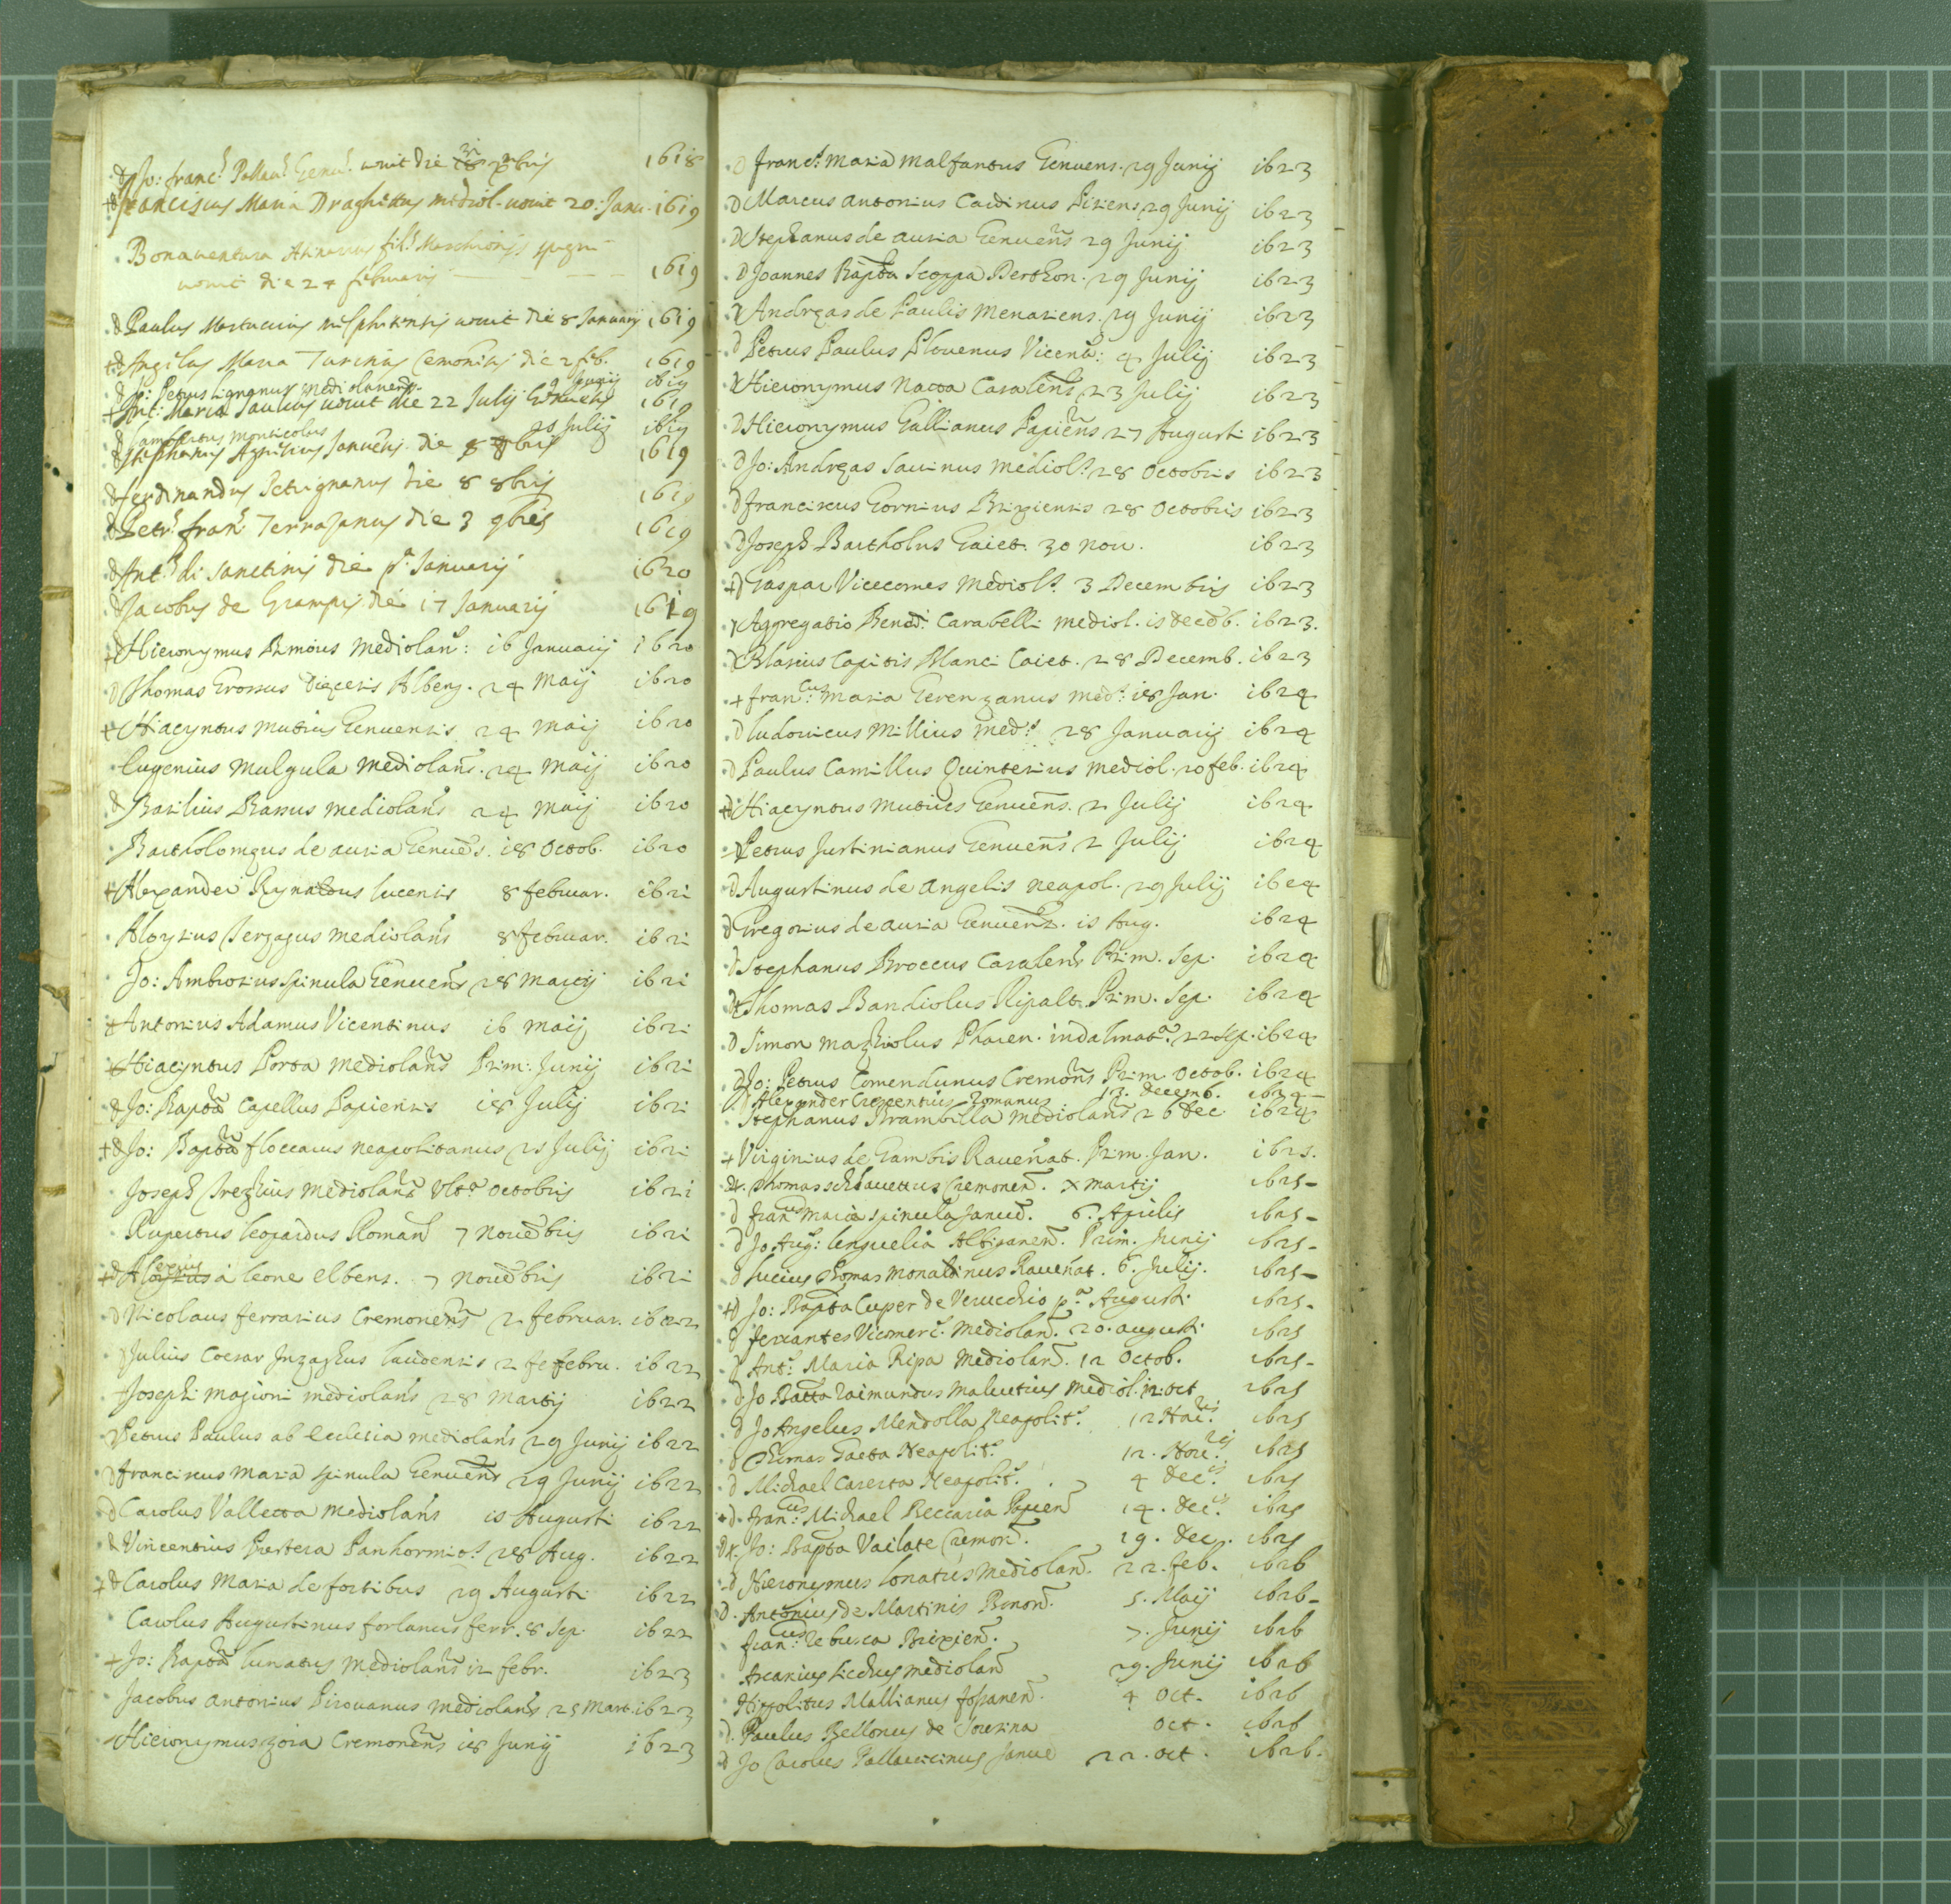 d Jo: franc.s Pallau.s Genu.s uenit die 18 xbris 1618
d franciscus Maria Draghettus mediol. uenit 20. Janu. 1619
Bonauentura fil.s Marchionis
uenit die 24 februarij 1619
d Paulus Martucius uenit die 8 Januarij 1619
+d Angelus Maria Turinus die 2 feb. 1619
d Jo: Petrus Lignanus mediolanens. 9 Junij 1619
+ Ant: Maria Saulius uenit die 22 Julij 1619
d Lambertus monticolus 25 Julij 1619
d Stephanus Januens. die 8 8bris 1619
d ferdinandus Petrignanus die 8 8bris 1619
d Petr.s fran.s Terrazanus die 3 9bris 1619
d Ant.s di Sanctinis die p.a Januarij 1620
d Jacobus de Grampis die 17 Januarij 1619
+d Hieronymus mediolan.s: 16 Januarij 1620
d Thomas Grossus Diecesis Albeng. 24 Maij 1620
+ Hiacyntus mutius Genuensis 24 maij 1620
Eugenius Mulgula Mediolans. 24 Maij 1620
d Basilius Bassus mediolans 24 Maij 1620
Bartholomeus de auria Genuens. 18 Octob. 1620
+ Alexander Rynaldus lucensis 8 februar. 1621
Aloysius mediolans 8 februar. 1621
Jo: Ambrosius Spinula Genuens 28 Martij 1621
+ Antonius Adamus Vicentinus 16 Maij 1621
+ Hiacyntus Porta mediolans Prim: Junij 1621
d Jo: Bapta Capellus Papiensis 18 Julij 1621
+d Jo: Bapta floccarus neapolitanus 25 Julij 1621
Joseph Mediolans Vlt.a Octobris 1621
Rupertus leopardus Roman.s 7 nouebris 1621
+d Alexius à leone elbens. 7 nouebris 1621
d Nicolaus ferrarius Cremonens 2 februar. 1622
Julius Coesar Inzaghus laudensis 2 fefebru. 1622
Joseph mazioni mediolans 28 Martij 1622
Petrus Paulus ab ecclesia mediolans 29 Junij 1622
d franciscus maria spinula Genuens 29 Junij 1622
d Carolus Valletta mediolans 15 Augusti 1622
d Vincentius Panhormit. 28 Aug. 1622
+d Carolus Maria de fortibus 29 Augusti 1622
Carolus Augustinus forlanus ferr. 8 Sep. 1622
+ Jo: Bapta lunatus mediolans 12 febr. 1623
Jacobus antonius Pirouanus mediolans 25 Mart. 1623
Hieronymus zoia Cremonens 18 Junij 1623
d franc.s Maria Malfantus Genuens. 29 Junij 1623
d Marcus antonius Cardinus 29 Junij 1623
d Stephanus de auria Genuens 29 Junij 1623
d Joannes Bapta Scoppa Derthon. 29 Junij 1623
Andreas de Paulis Menasiens. 29 Junij 1623
d Petrus Paulus Plouenus Vicent.: 4 Julij 1623
Hieronymus Natta Casalens 23 Julij 1623
d Hieronymus Gallianus Papiens 27 Augusti 1623
d Jo: Andreas Sauinus mediol.s 28 Octobris 1623
d franciscus Gornius Brixiensis 28 Octobris 1623
d Joseph Bartholus Gaiet. 30 nou. 1623
+d Gaspar Vicecomes Mediol.s 3 Decembris 1623
Aggregatio Bened.i Carabelli mediol. 15 decēb. 1623.
Blasius Capitis Blanci Caiet. 28 Decemb. 1623
+ fran.cus maria Gerenzanus med.s 18 Jan. 1624
d ludouicus Millius med.s 28 Januarij 1624
d Paulus Camillus Quinterius mediol. 20 feb. 1624
+d Hiacyntus mutius Genuens. 2 Julij 1624
Petrus Justinianus Genuens 2 Julij 1624
d Augustinus de Angelis neapol. 29 Julij 1624
d Gregorius de auria Genuens. 15 Aug. 1624
Stephanus Broccus Casalens Prim. Sep. 1624
d+ Thomas Bandiolus Ripalt. Prim. Sep. 1624
d Simon mazhiolus Pharen. in dalmat.a 22 sep. 1624
d Jo: Petrus Comendunus Cremons Prim. Octob. 1624
Alexander Crescentius Romanus 13. Decemb. 1624
Stephanus Brambilla mediolans 26 dec 1624
+ Virginius de Gambis Rauenat. Prim. Jan. 1625.
Thomas schiauettus Cremonen. X martij 1625
d fran.cus Maria Spinula Janue. 6. Aprilis 1625
d Jo Aug.s lenguelia Albiganen. Prim. Junij 1625
d Lucius Thomas Monaldinus Rauenat. 6. Julij. 1625
+d Jo: Bapta Cuper de Verucchio p.a Augusti 1625
d ferrantes Vicomerc.s Mediolan. 20. augusti 1625
d Ant.s Maria Ripa Mediolan. 12 Octob. 1625
d Jo Batta Raimundus Maluetius Mediol. 12: oct 1625
d Jo Angelus Mendolla Neapolit.s 12 Nou.ris 1625
d Thomas Gaeta Neapolit.s 12. Nou.ris 1625
d Michael Caserta Neapolit.s 4 Dec.ris 1625
+d. fran.cus Michael Beccaria Papien 14. Dec.ris 1625
d+. Jo: Bapta Vailate Cremon. 19. dec. 1625
d Hieronymus Lonatus Mediolan. 22. feb. 1626
d. Antonius de Martinis Bonon. 5. Maij 1626
fran.cus Rebusca Brixien. 7. Junij 1626
Ascanius Mediolan 29. Junij 1626
Hippolitus Mallianus fossanen. 4 Oct. 1626
d. Paulus Bellonus de Oct. 1626
d Jo Carolus Pallauicinus Janue 22. oct. 1626.